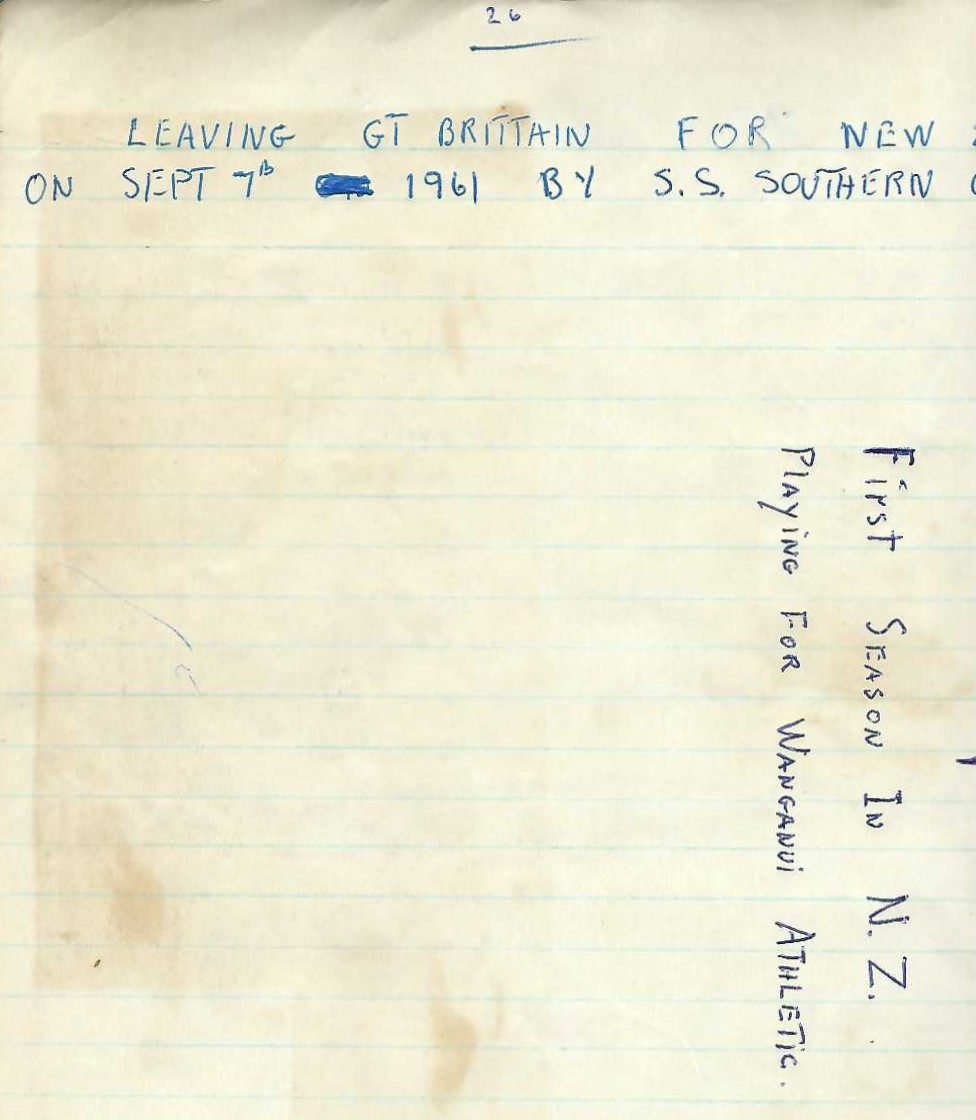 26
LEAVING GT BRITTAIN FOR NEW
ON SEPT 7th 1961 BY S.S. SOUTHERN
First SEASON IN N.Z.
PLAYING FOR WANGANUI ATHLETIC.